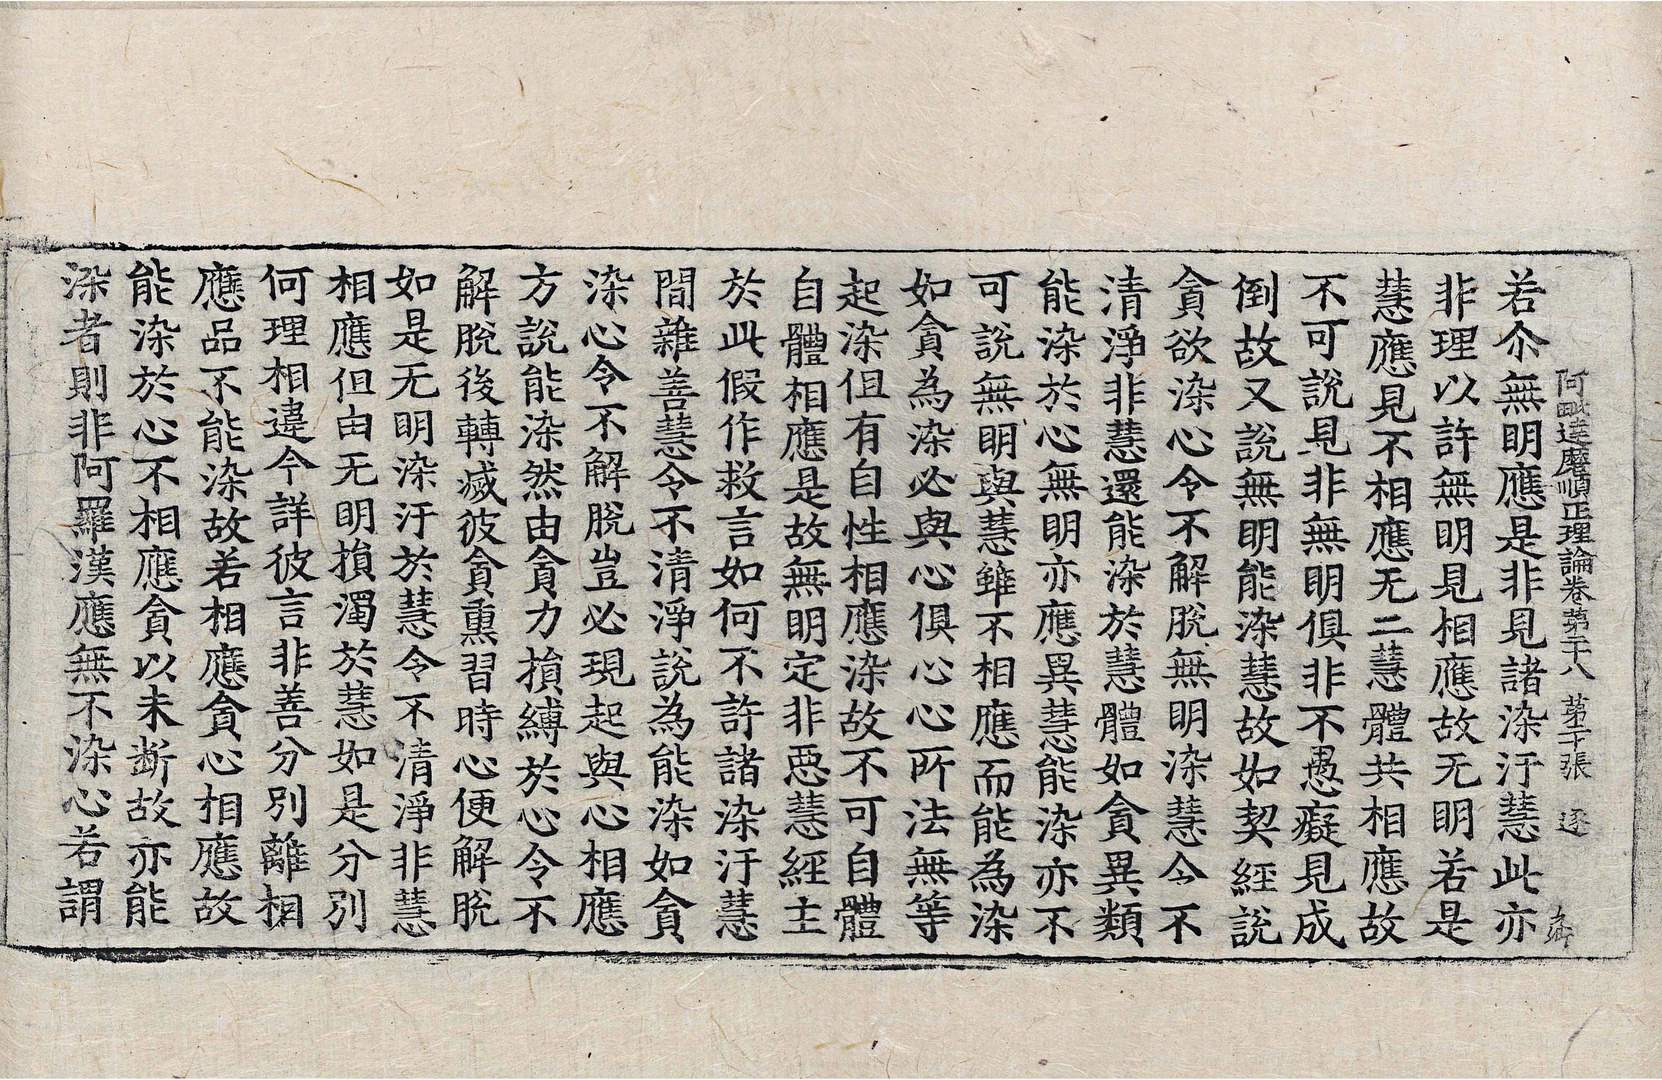 阿毗達磨順正理論卷第二十八 第二十張 逐
若尒無明應是非見諸染汙慧此亦
非理以許無明見相應故无明若是
慧應見不相應无二慧體共相應故
不可說見非無明俱非不愚癡見成
倒故又說無明能染慧故如契經說
貪欲染心令不解脫無明染慧令不
清淨非慧還能染於慧體如貪異類
能染於心無明亦應異慧能染亦不
可說無明與慧雖不相應而能為染
如貪為染必與心俱心心所法無等
起染但有自性相應染故不可自體
自體相應是故無明定非惡慧經主
於此假作救言如何不許諸染汙慧
間雜善慧令不清淨說為能染如貪
染心令不解脫豈必現起與心相應
方說能染然由貪力損縛於心令不
解脫後轉滅彼貪熏習時心便解脫
如是无明染汙於慧令不清淨非慧
相應但由无明損濁於慧如是分別
何理相違今詳彼言非善分別離相
應品不能染故若相應貪心相應故
能染於心不相應貪以未斷故亦能
染者則非阿羅漢應無不染心若謂